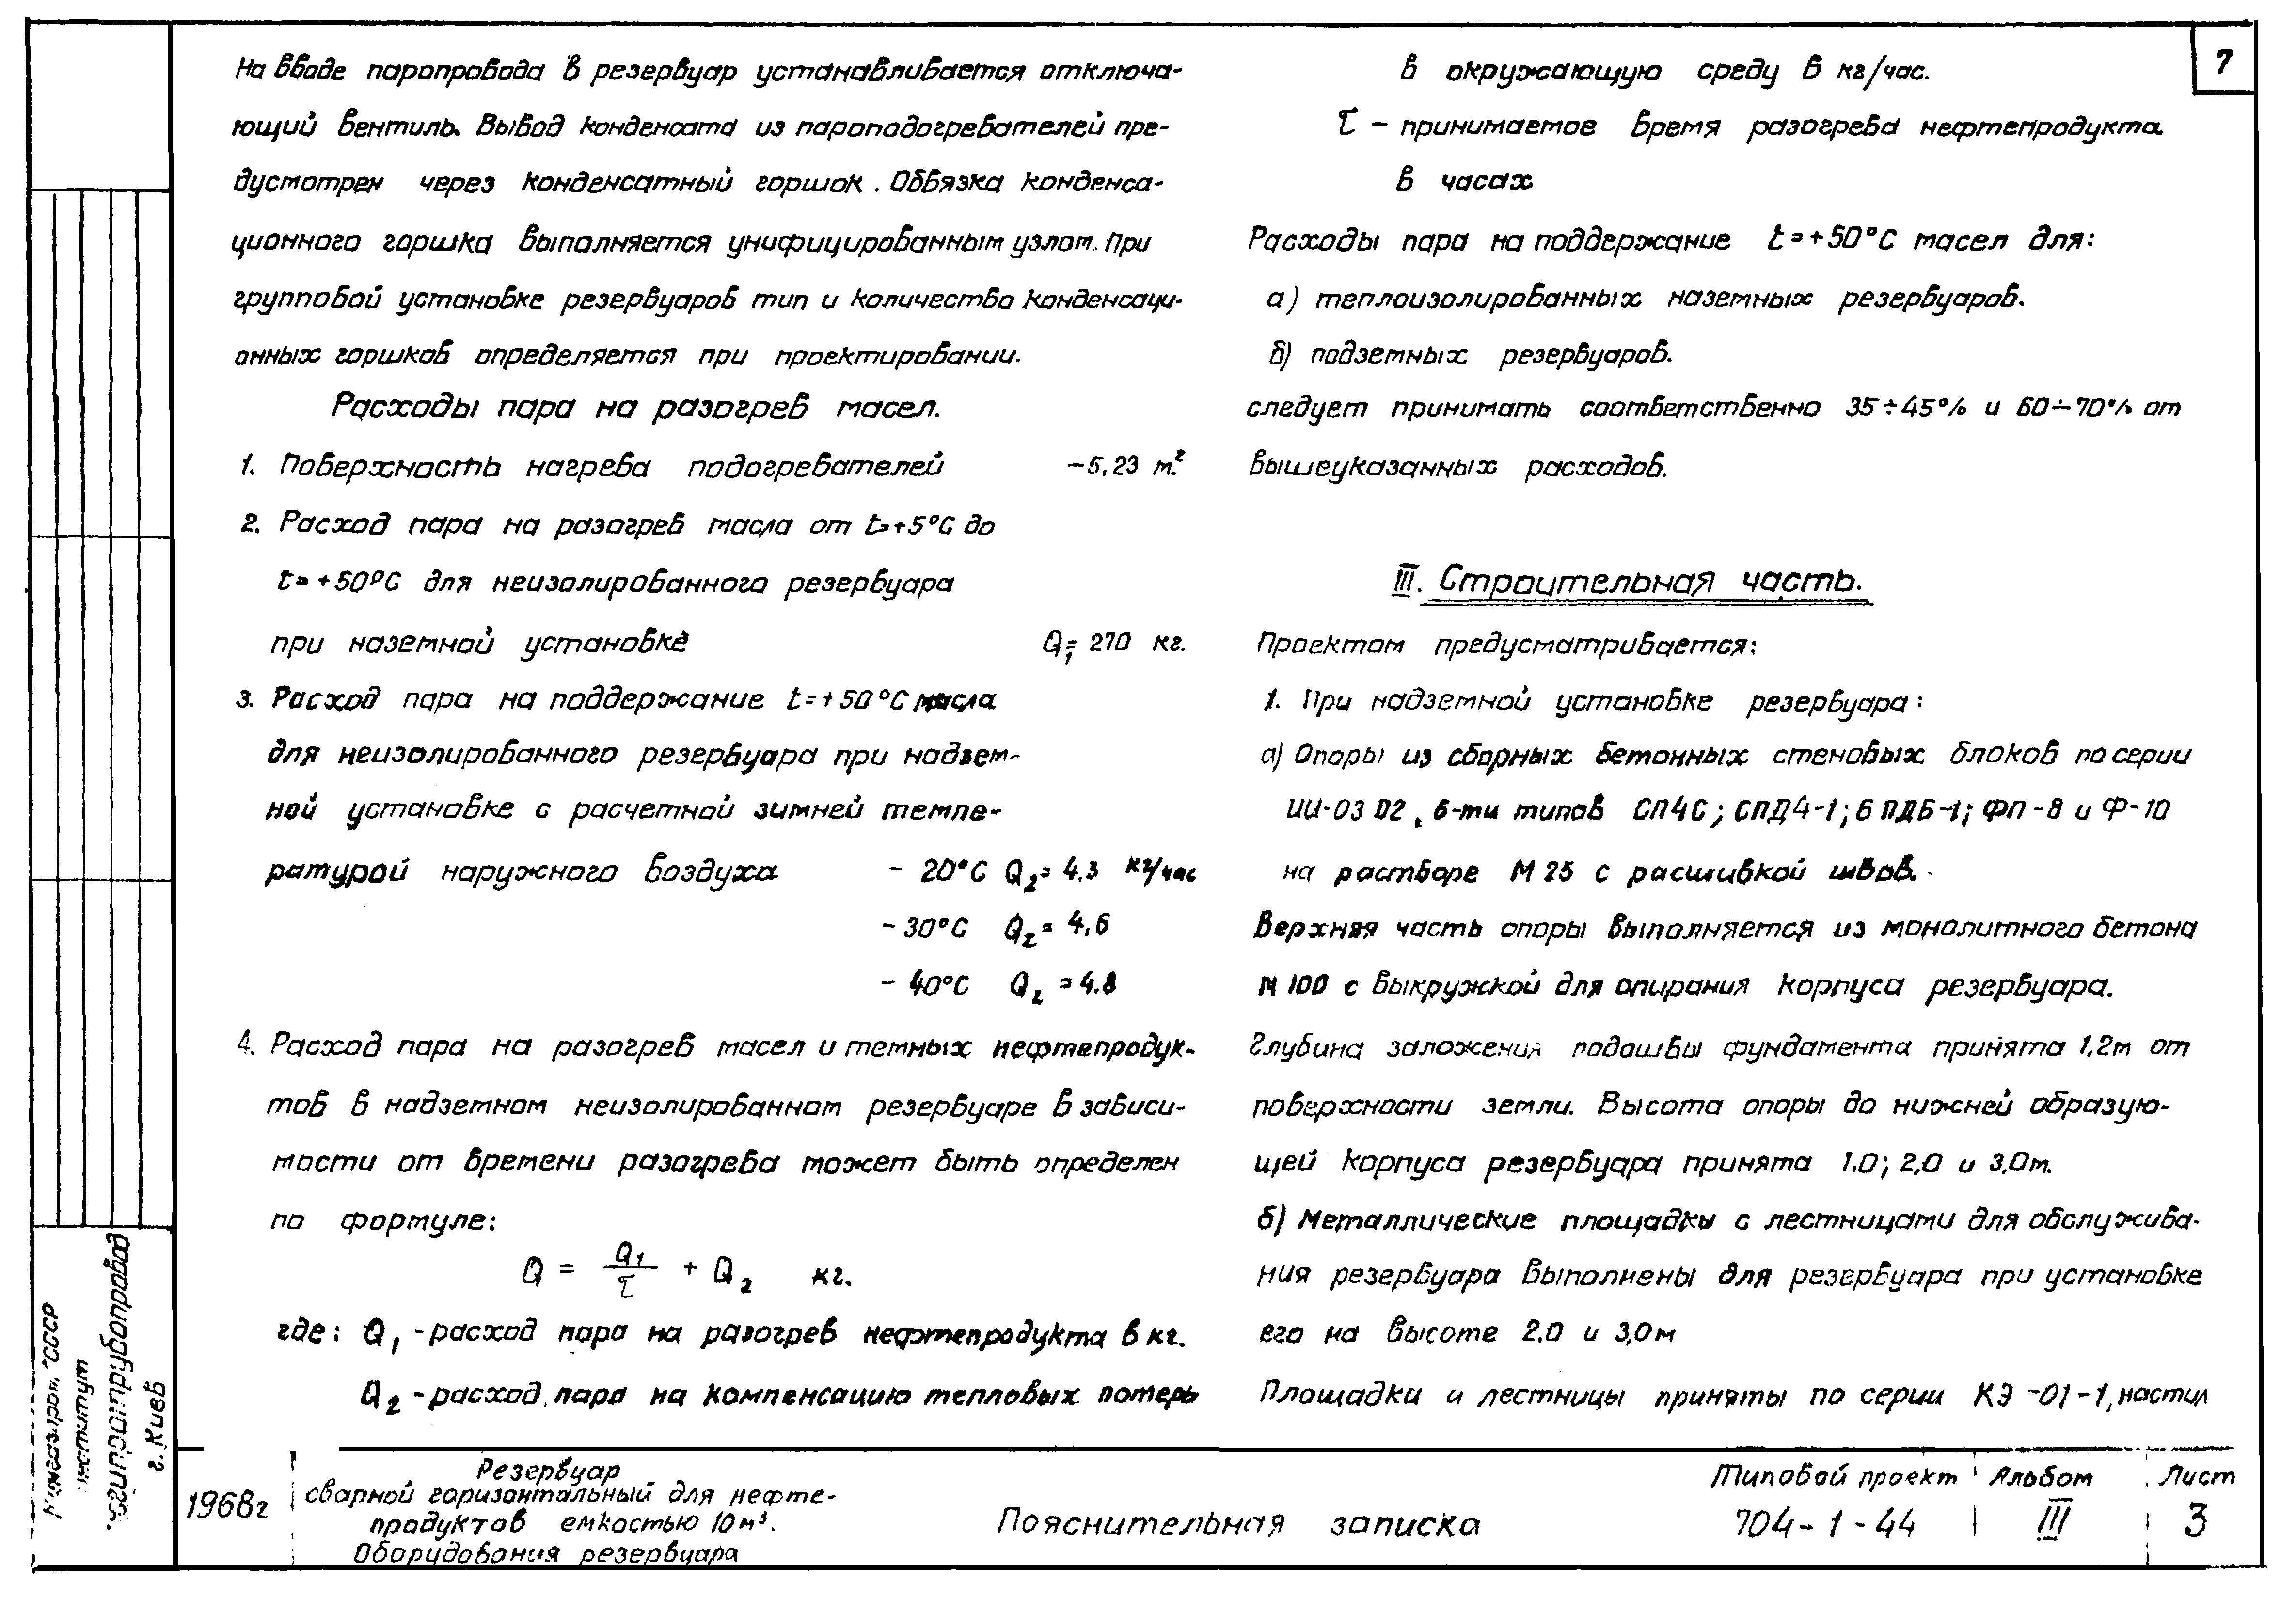 7
На вводе паропровода в резервуар устанавливается отключа-
ющий вентиль. Вывод конденсата из пароподогревателей пре-
дусмотрен через конденсатный горшок. Обвязка конденса-
ционного горшка выполняется унифицированным узлом. При
групповой установке резервуаров тип и количество конденсаци-
онных горшков определяется при проектировании.
Расходы пара на разогрев масел.
1. Поверхность нагрева подогревателей - 5,23 м.²
2. Расход пара на разогрев масла от t=+5°С до
t=+50°С для неизолированного резервуара
при наземной установке Q₁= 270 кг.
3. Расход пара на поддержание t=+50°С масла
для неизолированного резервуара при надзем-
ной установке с расчетной зимней темпе-
ратурой наружного воздуха - 20°С Q₂= 4.3 кг/час
- 30°С Q₂= 4,6
- 40°С Q₂ = 4.8
4. Расход пара на разогрев масел и темных нефтепродук-
тов в надземном неизолированном резервуаре в зависи-
мости от времени разогрева может быть определен
по формуле:
Q = Q₁/τ + Q₂ кг.
где: Q₁ - расход пара на разогрев нефтепродукта в кг.
Q₂ - расход пара на компенсацию тепловых потерь
в окружающую среду в кг/час.
τ - принимаемое время разогрева нефтепродукта
в часах
Расходы пара на поддержание t=+50°С масел для:
а) теплоизолированных наземных резервуаров.
б) подземных резервуаров.
следует принимать соответственно 35÷45% и 60÷70% от
вышеуказанных расходов.
III. Строительная часть.
Проектом предусматривается:
1. При надземной установке резервуара:
а) Опоры из сборных бетонных стеновых блоков по серии
ИИ-03 02, 6-ти типов СП4С; СПД4-1; 6 ПДБ-1; ФП-8 и Ф-10
на растворе М 25 с расшивкой швов.
Верхняя часть опоры выполняется из монолитного бетона
М 100 с выкружкой для опирания корпуса резервуара.
Глубина заложения подошвы фундамента принята 1,2м от
поверхности земли. Высота опоры до нижней образую-
щей корпуса резервуара принята 1.0; 2,0 и 3,0м.
б) Металлические площадки с лестницами для обслужива-
ния резервуара выполнены для резервуара при установке
его на высоте 2.0 и 3,0м
Площадки и лестницы приняты по серии КЭ-01-1, настил
СССР
институт
г. Киев
1968г
Резервуар
сварной горизонтальный для нефте-
продуктов емкостью 10м³.
Оборудования резервуара
Пояснительная записка
Типовой проект
704-1-44
Альбом
III
Лист
3